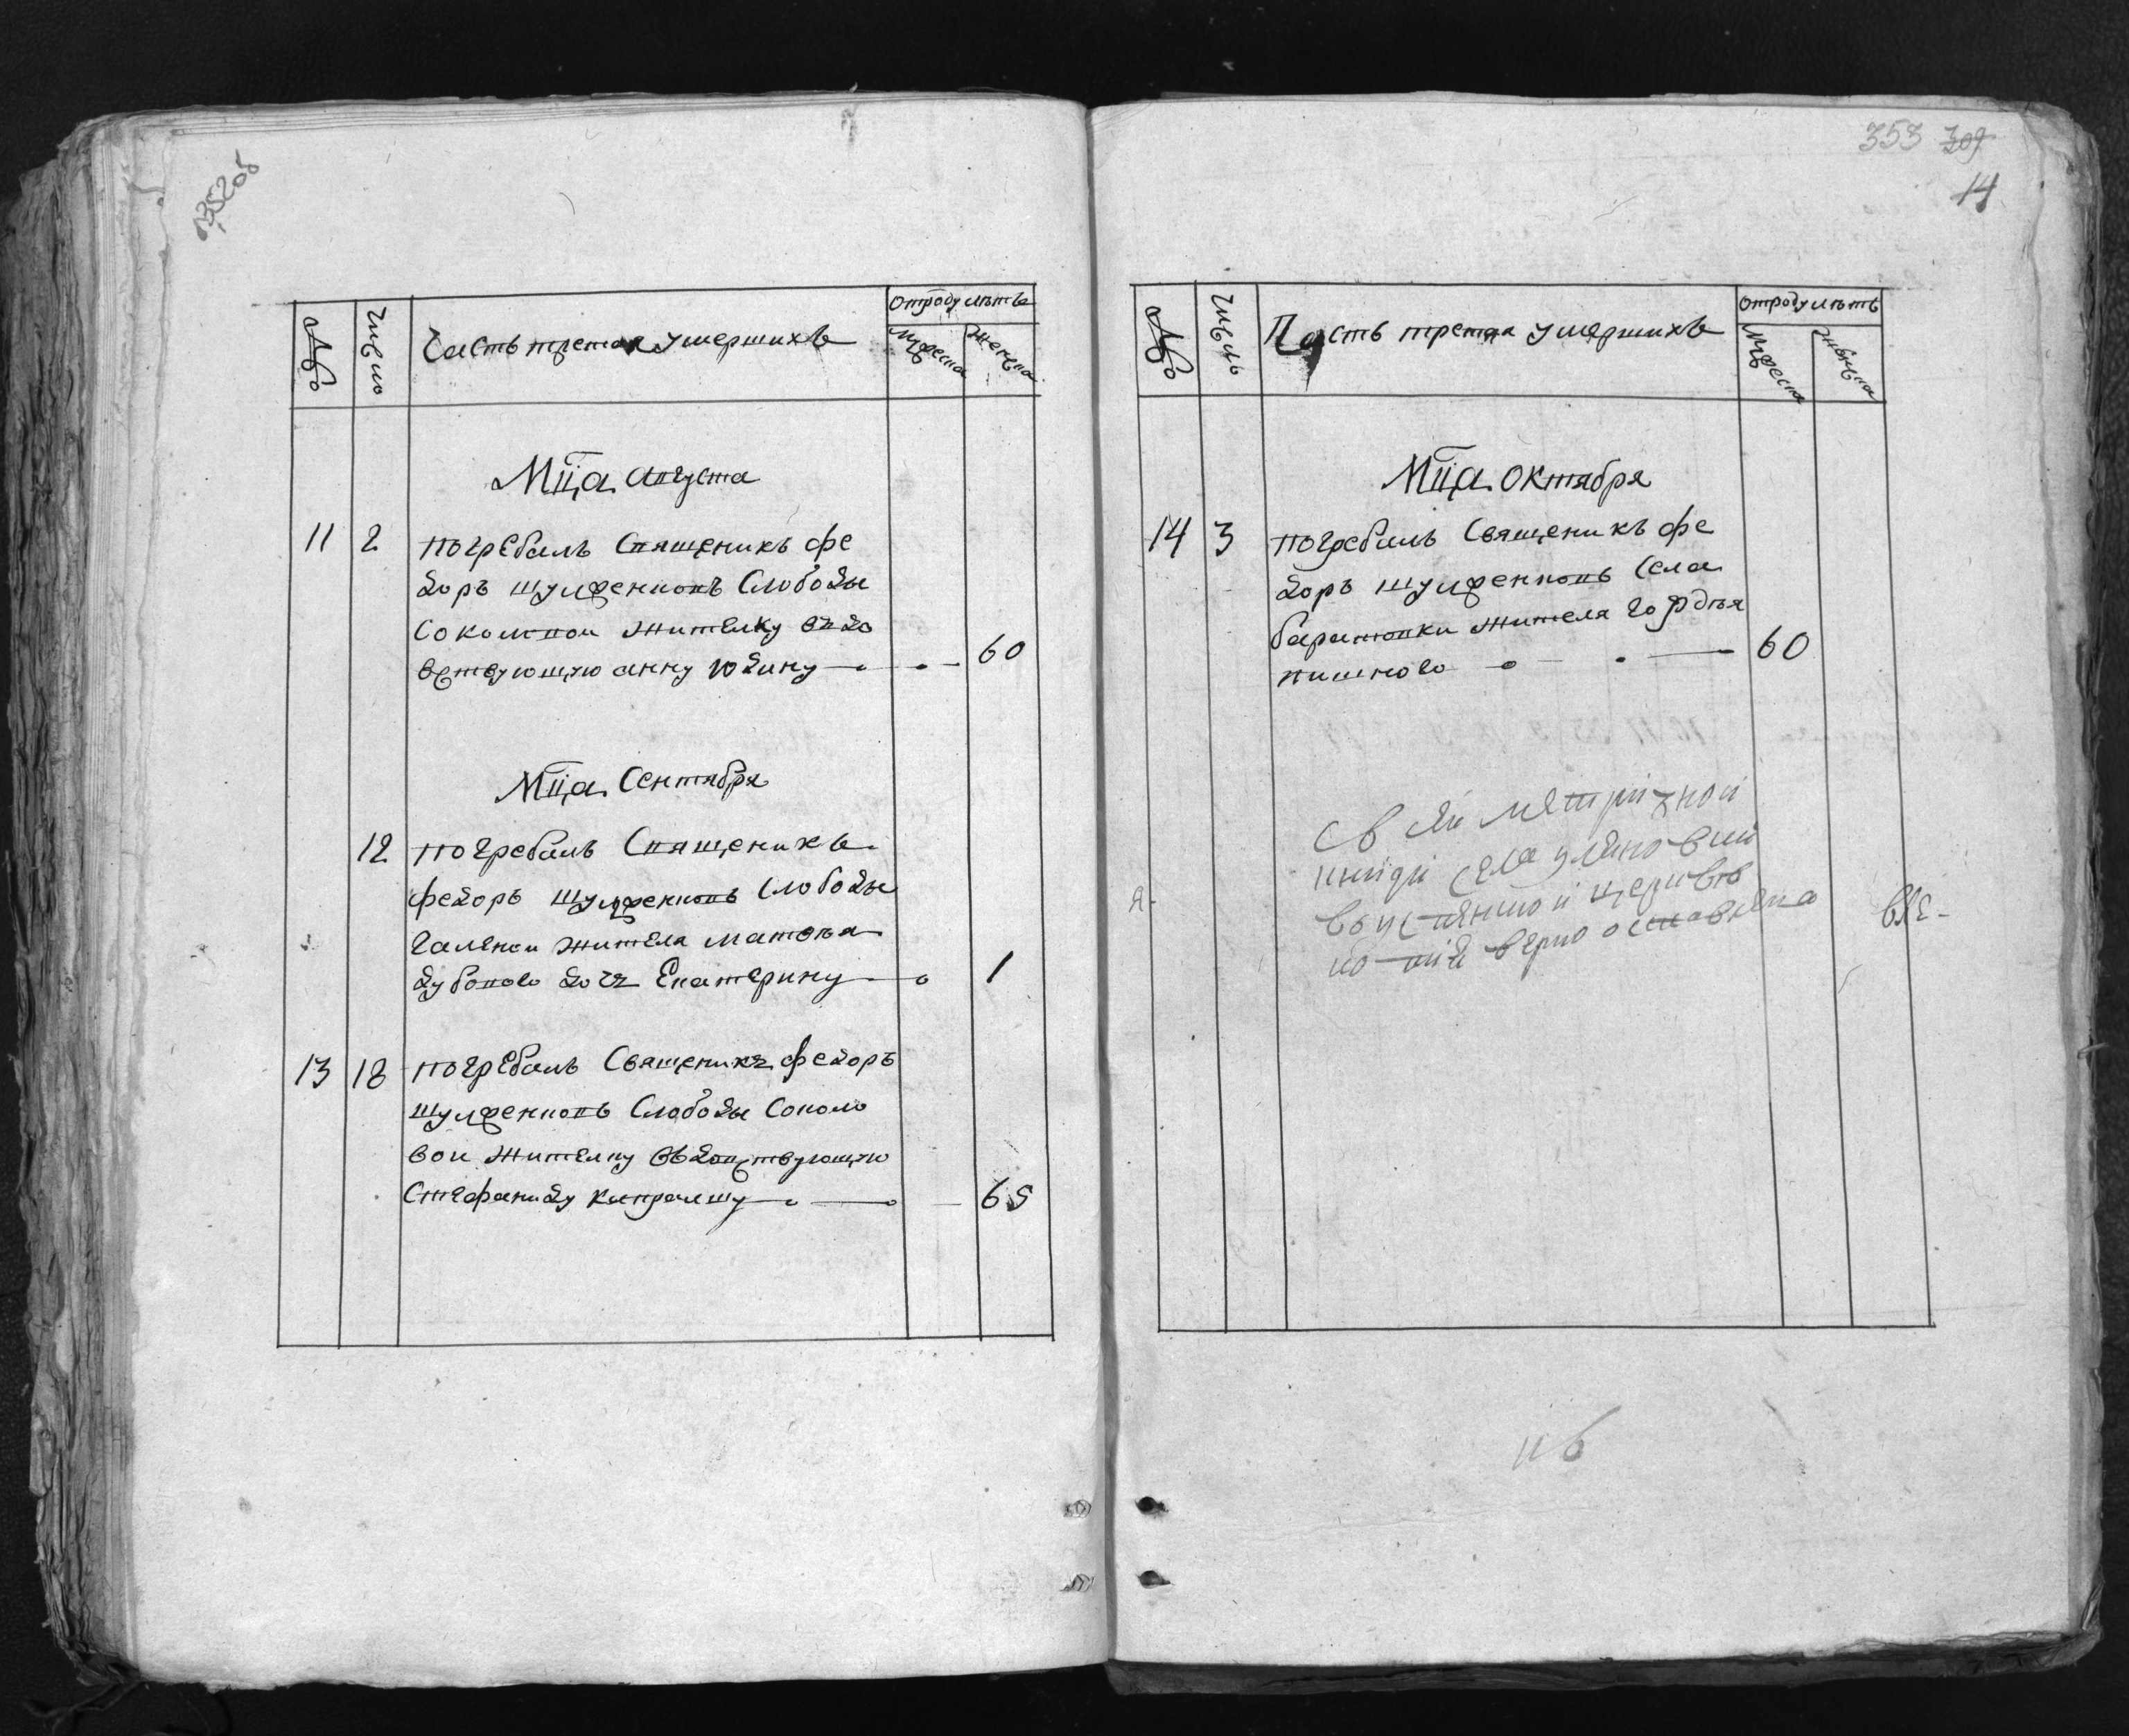 352об
№
Число
Часть третая умершихъ
отроду летъ
мужеска
женска
Мца августа
11 2 погребалъ Священикъ фе
доръ шулженковъ Слободы
Соколовой жителку вдо
вствующую анну юдину 60
Мца Сентября
12 погребалъ Священикъ
федоръ шулженковъ Слободы
галенои жителя матвея
дубового дочъ Екатерину 1
13 18 погребалъ Священикъ федоръ
шулженковъ Слободы Соколо
вои жителку вдовствующую
Стефаниду капралшу 65
353 309
14
№
Число
Часть третая умершихъ
отроду летъ
мужеска
женска
Мца октября
14 3 погребалъ Священикъ фе
доръ шулженковъ Села
баратовки жителя гордѣя
пишного 60